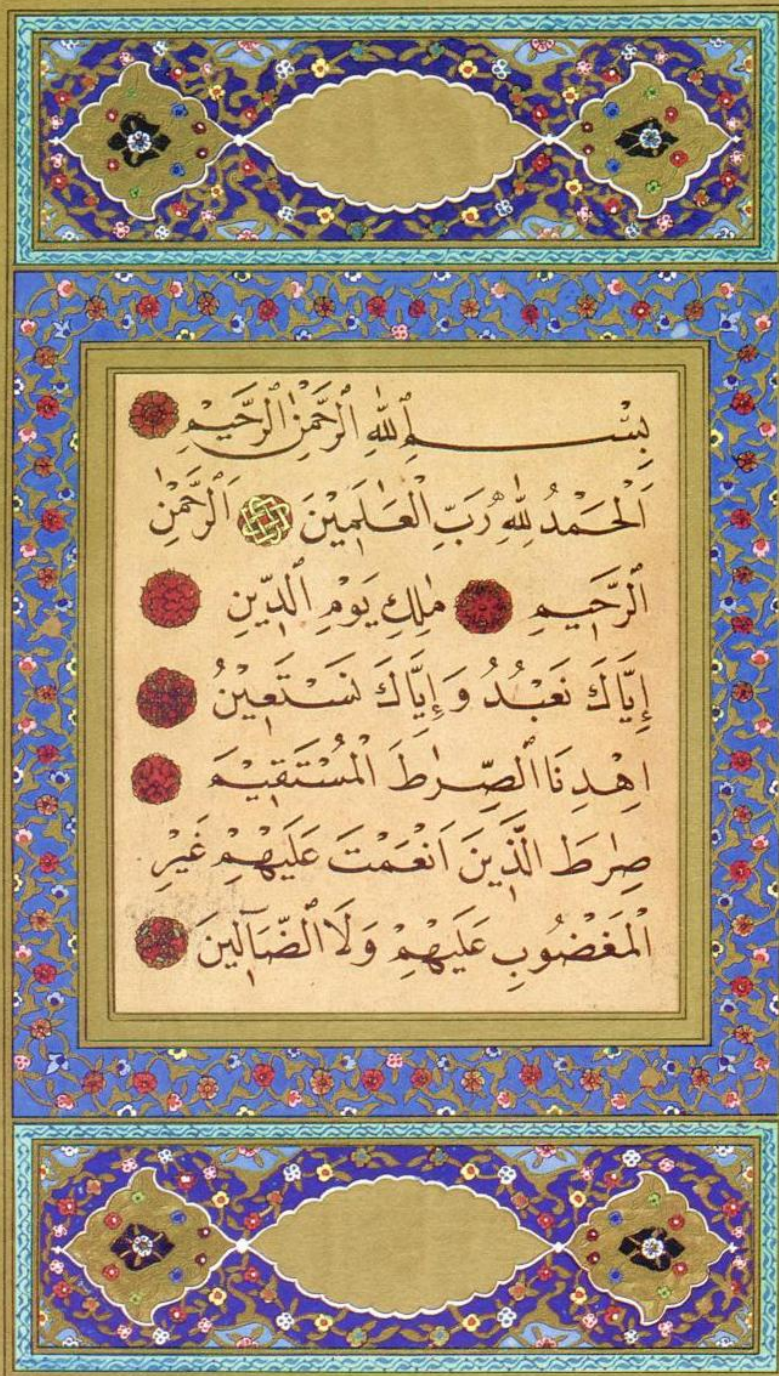 بِسْمِ ٱللهِ ٱلرَّحْمٰنِ ٱلرَّحِيمِ
اَلْحَمْدُ لِلّٰهِ رَبِّ الْعَالَمِينَ اَلرَّحْمٰنِ
ٱلرَّحِيمِ مٰلِكِ يَوْمِ ٱلدِّينِ
إِيَّاكَ نَعْبُدُ وَإِيَّاكَ نَسْتَعِينُ
اِهْدِنَا ٱلصِّرٰطَ الْمُسْتَقِيمَ
صِرٰطَ الَّذِينَ اَنْعَمْتَ عَلَيْهِمْ غَيْرِ
الْمَغْضُوبِ عَلَيْهِمْ وَلَا ٱلضَّآلِّينَ